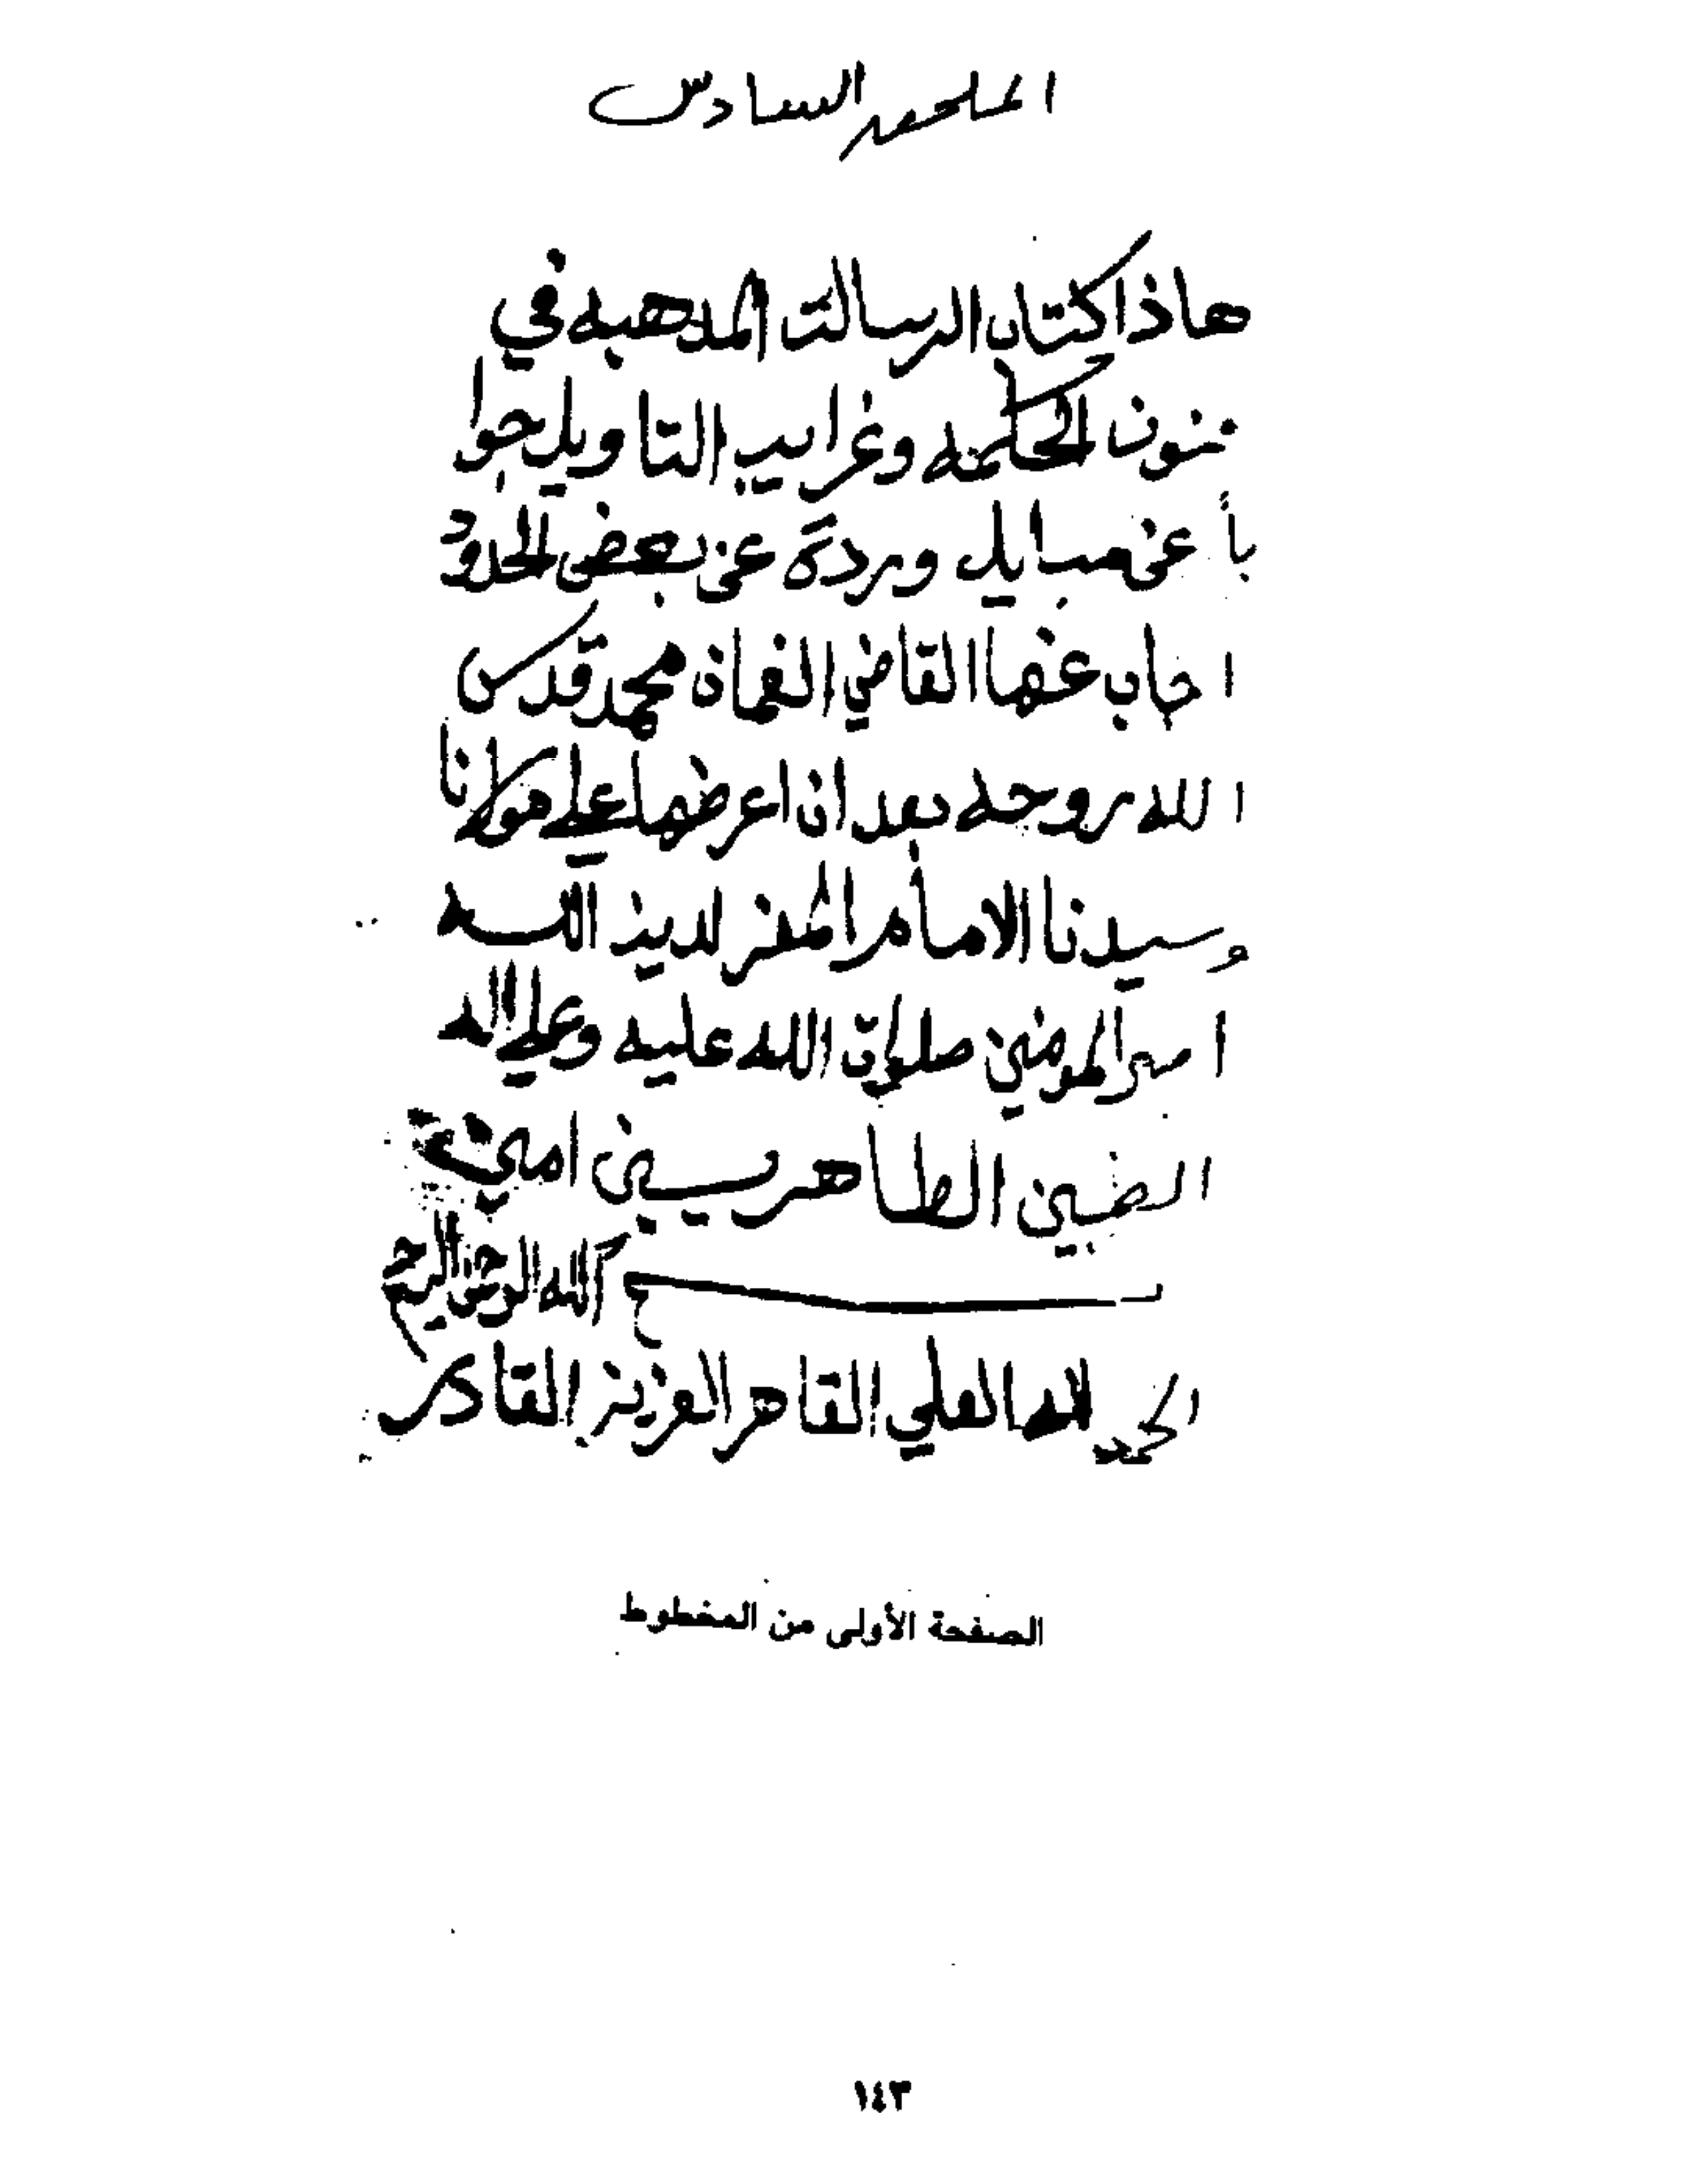 الملحق السادس
هاذا كتاب الرسالة المذهبه في
فنون الحكمه وغرايب التاويل جوا
بأ عن مسايل وردة عن بعض الحدود
اجاب عنها القاضي النعمان محمد قدس
الله روحه بعد ان اعرضها على مولانا
وسيدنا الامام المعز لدين الله
امير المومنين صلواة الله عليه وعلى اله
الطيبين الطاهرين امين
بسم الله الرحمن الرحيم
الحمد لله العلي القاهر العزيز القادر
الصفحة الأولى من المخطوط
١٤٣